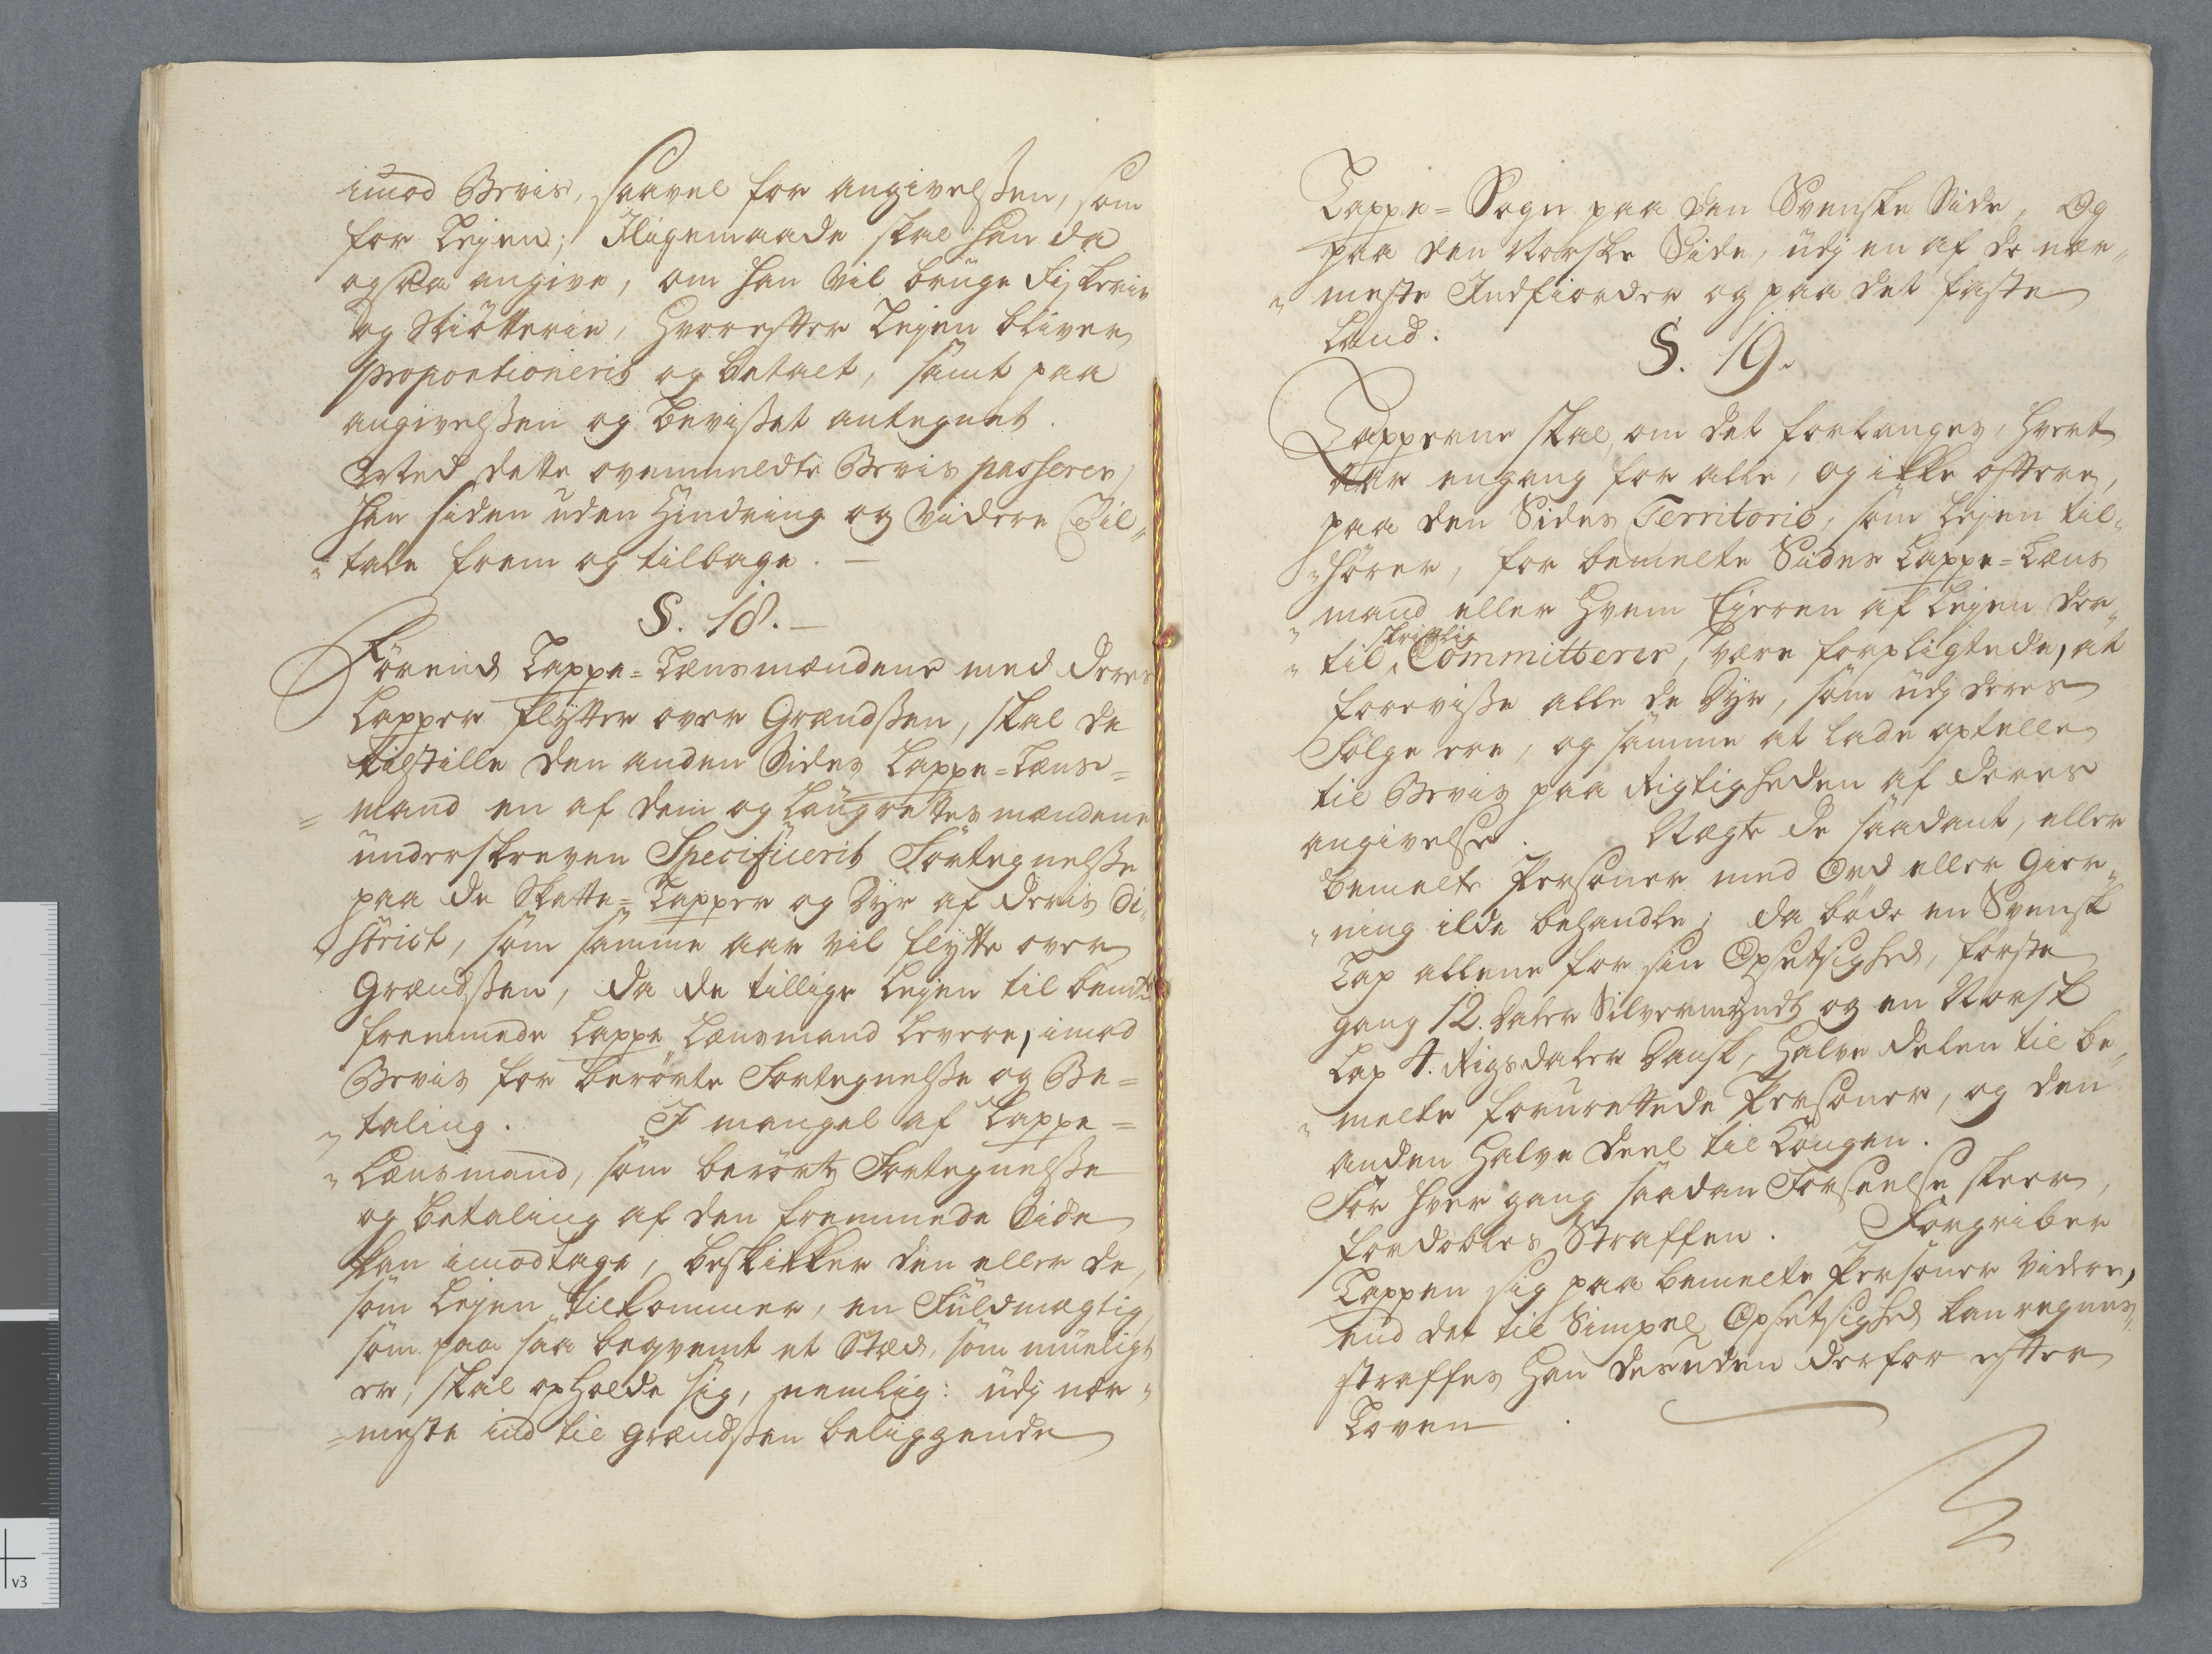 imod Bevis, saavel for angivelßen, som
for Lejen; Jligemaade skal han da
ogsaa angive, om han vil bruge Fiskerie
og Skiötterie, hvorefter Lejen bliver
proportionerit og betalt, samt paa
angivelßen og Bevißet antegnet.
Med dette ovenmeldte Bevis passerer
han siden uden Hindring og videre Til„
„tale frem og tilbage. —
§. 18. —
Förend Lappe=Lænsmændene med deres
Lapper flytter over Grændßen, skal de
tilstille den anden Sides Lappe=Læns=
=mand en af dem og Laugrettesmændene
underskreven Specificerit Fortegnelße
paa de Skatte=Lapper og Dyr af deris Di„
„strict, som samme aar vil flytte over
Grændßen, da de tillige Lejen til bemte
fremmede Lappe Lænsmand levere, imod
Bevis for berörte Fortegnelße og Be=
„taling. I mangel af Lappe=
„Lænsmand, som berörte Fortegnelße
og betaling af den fremmede Side
kan imodtage, beskikker den eller de,
som Lejen tilkommer, en Fuldmægtig,
som paa saa beqvemt et Stæd, som mueligt
er, skal opholde sig, nemlig: udj nær„
=meste ind til grændßen beliggende
Lappe=Sogn paa den Svenske Side, Og
paa den Norske Side, udj en af de nær„
„meste Indfiorder og paa det faste
Land.
§. 19.
Lapperne skal, om det forlanges, hvert
Aar engang for alle, og ikke oftere,
paa den Sides Territorio, som Lejen til„
„hörer, for bemelte Sides Lappe=Læns
„mand eller hvem Ejeren af Lejen der„
skriftlig
„til Committerer, være forpligtede, at
foreviße alle de Dyr, som udj deres
Fölge ere, og samme at lade optelle
til Bevis paa Rigtigheden af deres
angivelse. Nægte de saadant, eller
bemelte Personer med Ord eller Gier„
„ning ilde behandle; da böde en Svensk
Lap allene for sin Opsetsighed, förste
gang 12. Daler Silvermyndt og en Norsk
Lap 4. Rigsdaler Dansk, halve delen til be„
„melte forurettede Personer, og den
anden halve deel til Kongen.
For hver gang saadan Forseelse skeer,
fordobles Straffen. Forgriber
Lappen sig paa bemelte Personer videre,
end det til Simpel Opsetsighed kan regnes,
straffes han desuden derfor efter
Loven.